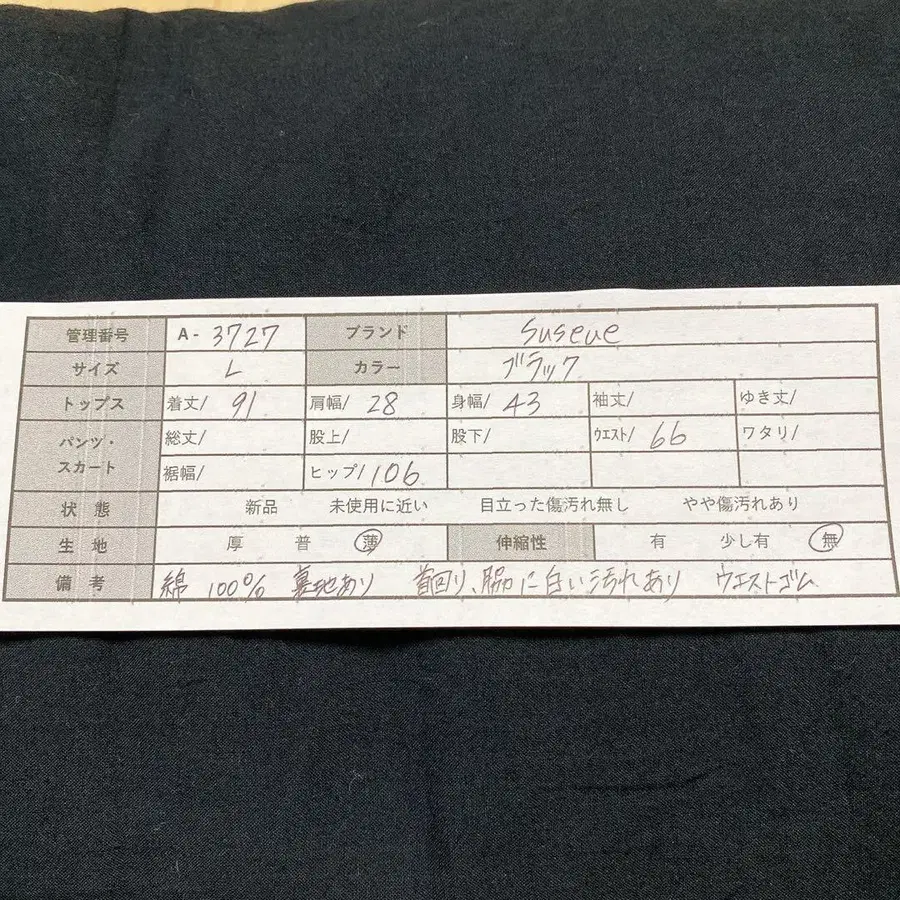 管理番号 A- 3727 ブランド Suseue
サイズ L カラー ブラック
トップス 着丈/ 91 肩幅/ 28 身幅/ 43 袖丈/ ゆき丈/
パンツ・スカート 総丈/ 股上/ 股下/ ウエスト/ 66 ワタリ/
裾幅/ ヒップ/ 106
状態 新品 未使用に近い 目立った傷汚れ無し やや傷汚れあり
生地 厚 普 薄 伸縮性 有 少し有 無
備考 綿 100% 裏地あり 首回り、脇に白い汚れあり ウエストゴム